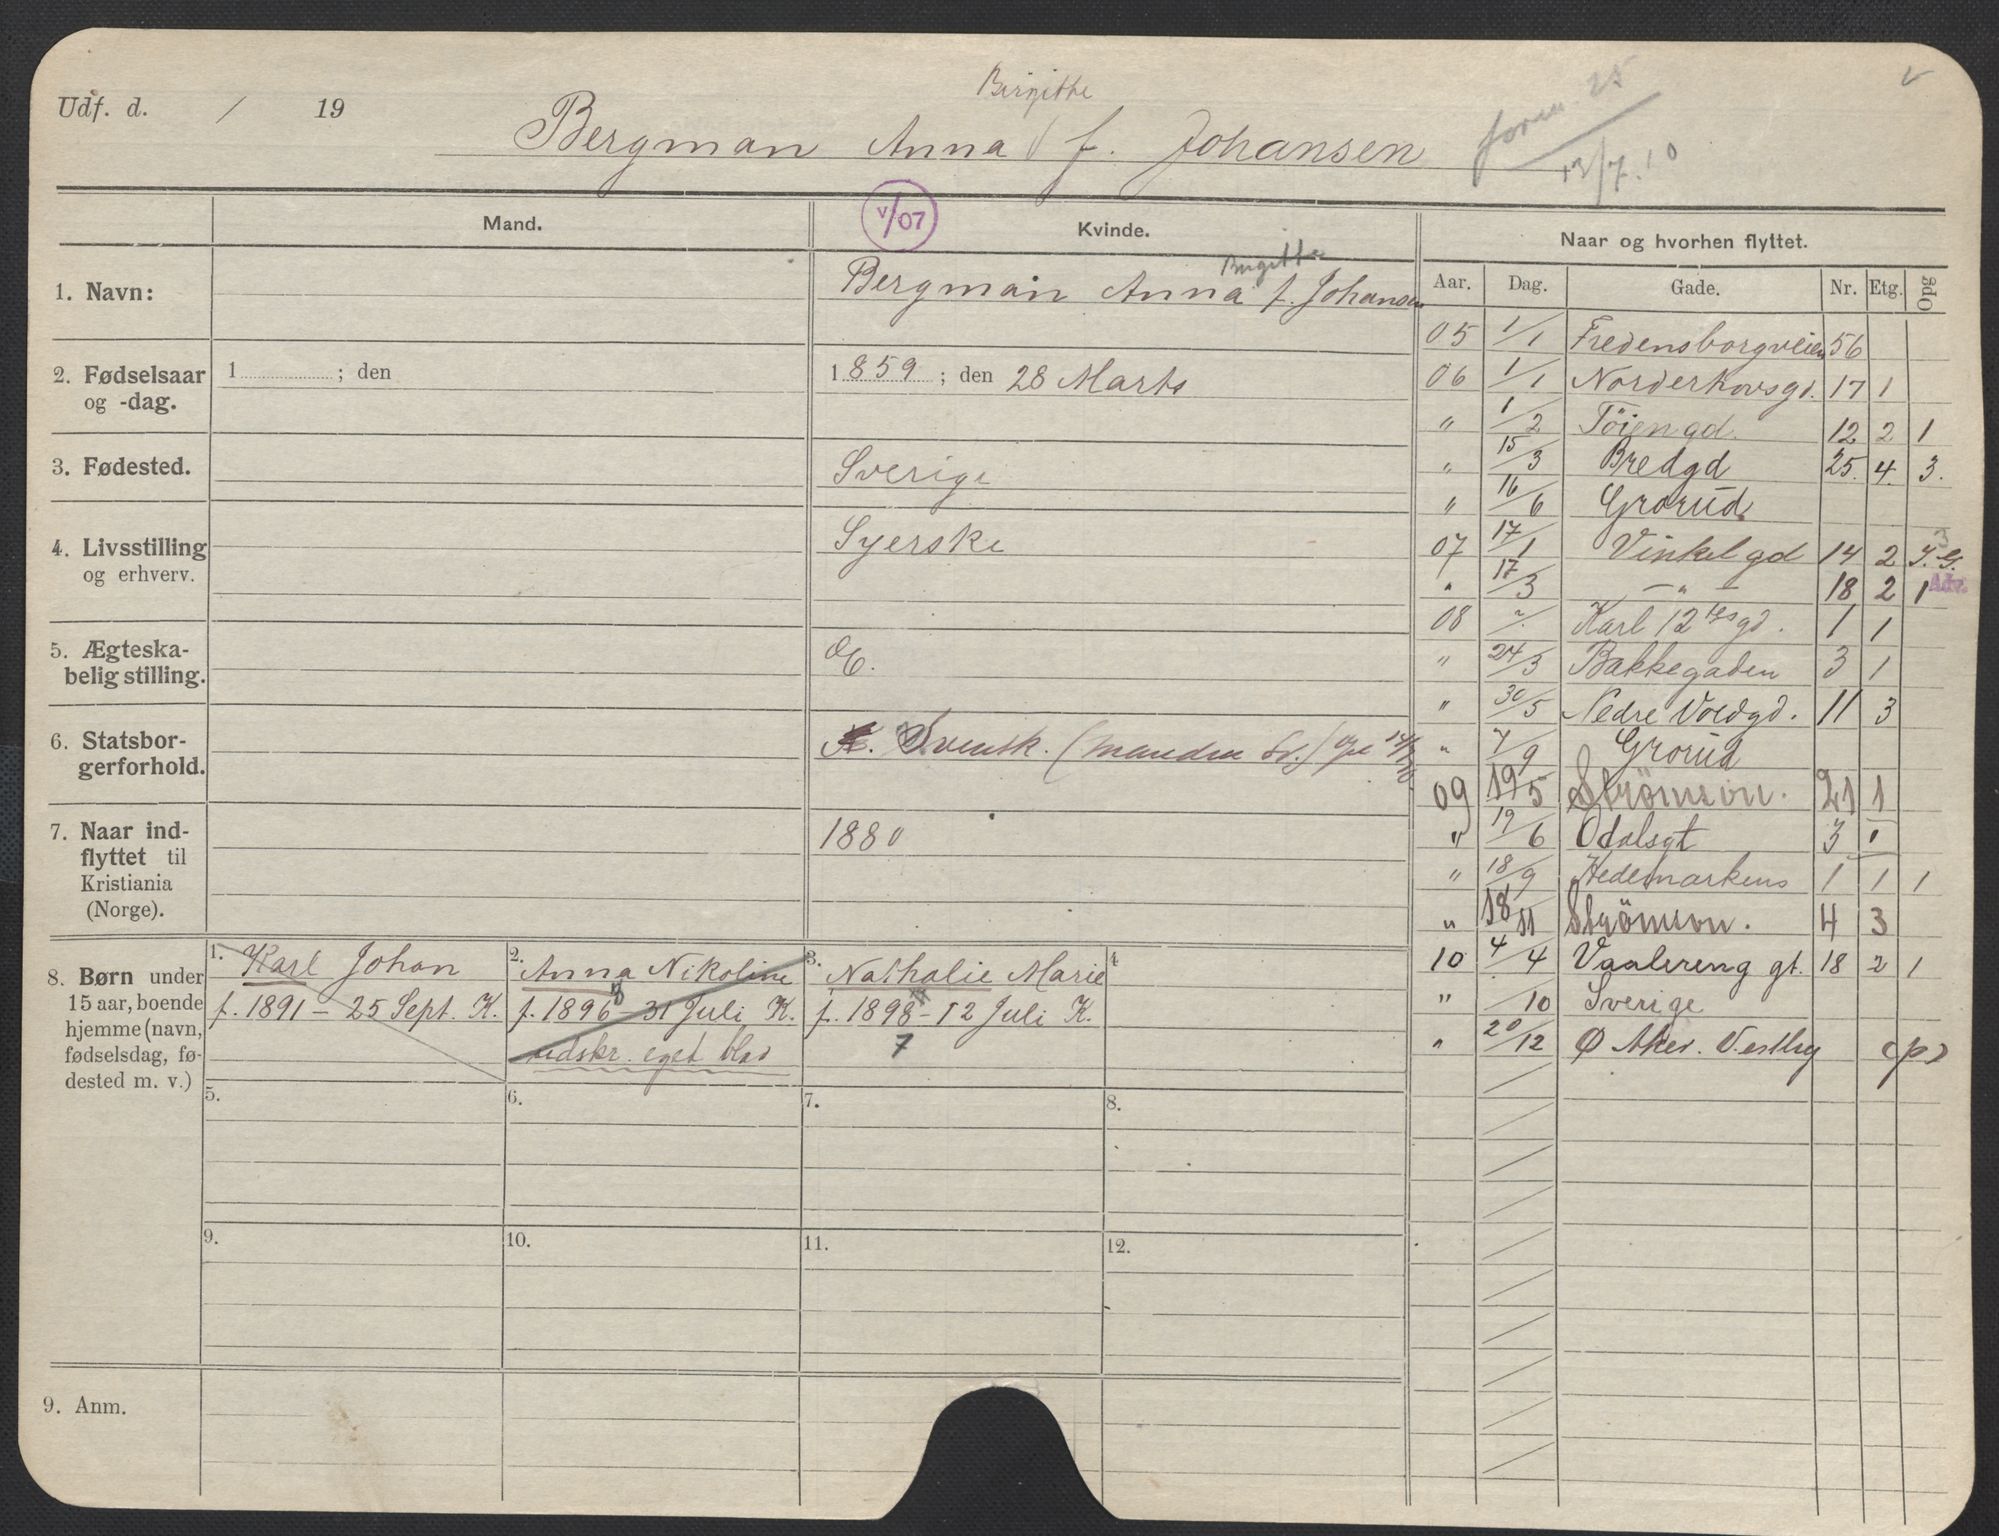 Udf. d. / 19
Birgitte
Bergman Anna f. Johansen
13/7.10
v/07
Mand.
Kvinde.
Naar og hvorhen flyttet.
Aar. Dag. Gade. Nr. Etg. Opg
1. Navn:
Birgitte
Bergman Anna f. Johansen
2. Fødselsaar og -dag.
1 ; den
1859 ; den 28 Marts
3. Fødested.
Sverige
4. Livsstilling og erhverv.
Syerske
5. Ægteska-
belig stilling.
6. Statsbor-
gerforhold.
Svensk.
7. Naar ind-
flyttet til
Kristiania
(Norge).
1880
05 1/1 Fredensborgveien 56
06 1/1 Norderhovsgd. 17 1
" 1/2 Töiengd. 12 2 1
" 15/3 Bredgd 25. 4. 3.
" 16/6 Grorud
07 17/1 Vinkelgd 14 2 3
" 17/3 – " – 18 2 1 Adv.
08 Karl 12tesgd. 1 1
" 24/3 Bakkegaden 3 1
" 30/5 Nedre Voldgd. 11 3
" 7/9 Grorud
09 19/5 Strömsvn. 21 1
" 19/6 Odalsgt 3 1
" 18/9 Hedemarkens 1 1 1
" 18/11 Strömsvn. 4 3
10 4/4 Vaalereng gt. 18 2 1
" /10 Sverige
" 20/12 Ø Aker. Vestby (p)
8. Børn under
15 aar, boende
hjemme (navn,
fødselsdag, fø-
dested m. v.)
1. Karl Johan
f. 1891 – 25 Sept. K.
2. Anna Nikoline
f. 1896 – 31 Juli K.
udskr. eget blad
3. Nathalie Marie
f. 1898 – 12 Juli K.
7
4
5.
6.
7.
8.
9.
10.
11.
12.
9. Anm.